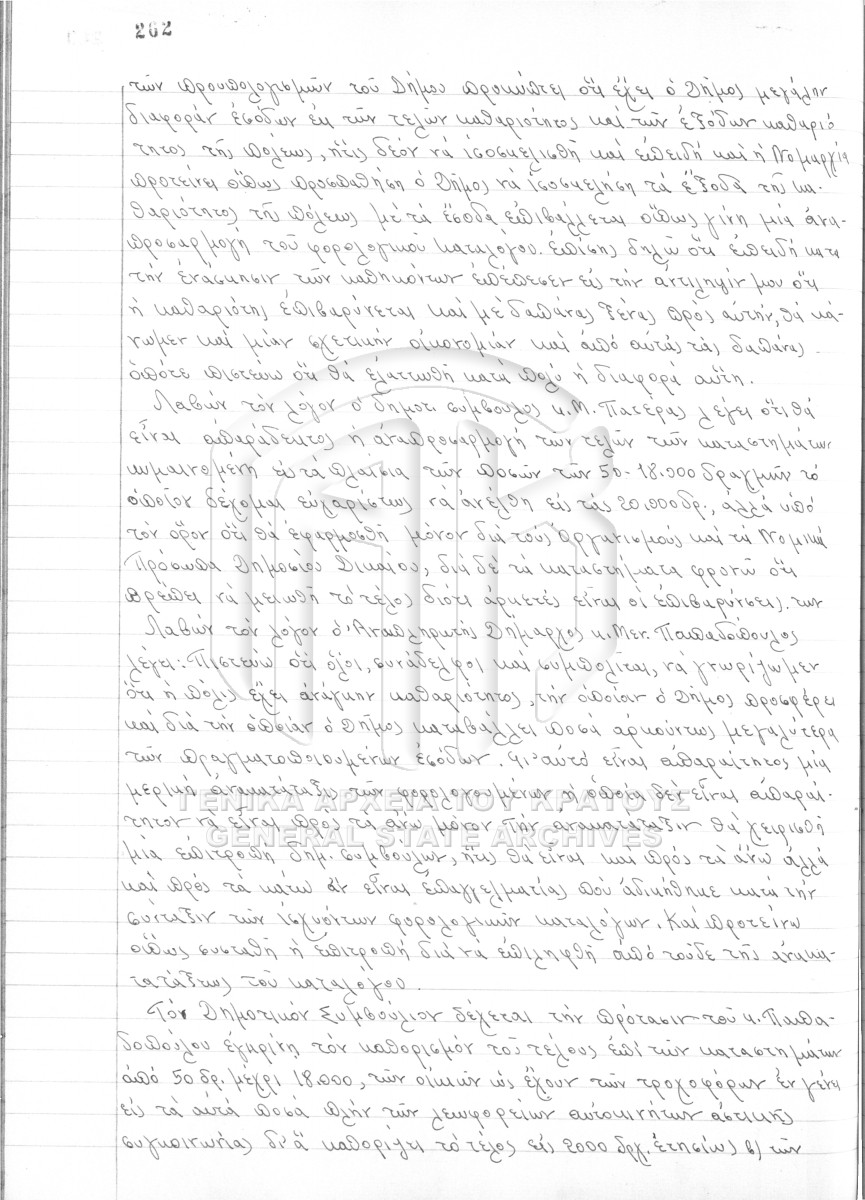 262
τῶν προϋπολογισμῶν τοῦ Δήμου προκύπτει ὅτι ἔχει ὁ Δῆμος μεγάλην
διαφοράν ἐσόδων ἐκ τῶν τελῶν καθαριότητος καί τῶν ἐξόδων καθαριό
τητος τῆς πόλεως, ἥτις δέον νά ἰσοσκελισθῆ καί ἐπειδή καί ἡ Νομαρχία
προτείνει ὅπως προσπαθήση ὁ Δῆμος νά ἰσοσκελήση τά ἔξοδα τῆς κα-
θαριότητος τῆς πόλεως μέ τά ἔσοδα ἐπιβάλλεται ὅπως γίνη μία ἀνα-
προσαρμογή τοῦ φορολογικοῦ καταλόγου. ἐπίσης δηλῶ ὅτι ἐπειδή κατά
τήν ἐνάσκησιν τῶν καθηκόντων ἐπέπεσεν εἰς τήν ἀντίληψίν μου ὅτι
ἡ καθαριότης ἐπιβαρύνεται καί μέ δαπάνας ξένας πρός αὐτήν, θά κά-
νωμεν καί μίαν σχετικήν οἰκονομίαν καί ἀπό αὐτάς τάς δαπάνας
ὁπότε πιστεύω ὅτι θά ἐλαττωθῆ κατά πολύ ἡ διαφορά αὕτη.
Λαβών τόν λόγον ὁ δημοτ. σύμβουλος κ. Μ. Πατέρας λέγει ὅτι θά
εἶναι ἀπαράδεκτος ἡ ἀναπροσαρμογή τῶν τελῶν τῶν καταστημάτων
κυμαινομένη εἰς τά πλαίσια τῶν ποσῶν τῶν 50-18.000 δραχμῶν τό
ὁποῖον δέχομαι εὐχαρίστως νά ἀνέλθη εἰς τάς 20.000 δρ., ἀλλά ὑπό
τόν ὅρον ὅτι θά ἐφαρμοσθῆ μόνον διά τούς Ὀργανισμούς καί τά Νομικά
Πρόσωπα Δημοσίου Δικαίου, διά δέ τά καταστήματα φρονῶ ὅτι
πρέπει νά μειωθῆ τό τέλος διότι ἀρκετές εἶναι οἱ ἐπιβαρύνσεις των
Λαβών τόν λόγον ὁ Ἀναπληρωτής Δήμαρχος κ. Μεν. Παπαδόπουλος
λέγει: Πιστεύω ὅτι ὅλοι, συνάδελφοι καί συμπολῖται, νά γνωρίζωμεν
ὅτι ἡ πόλις ἔχει ἀνάγκην καθαριότητος, τήν ὁποίαν ὁ Δῆμος προσφέρει
καί διά τήν ὁποίαν ὁ Δῆμος καταβάλλει ποσά ἀρκούντως μεγαλύτερα
τῶν πραγματοποιουμένων ἐσόδων. Γι' αὐτό εἶναι ἀπαραίτητος μία
μερική ἀνακατάταξις τῶν φορολογουμένων ἡ ὁποία δέν εἶναι ἀπαραί-
τητον νά εἶναι πρός τά ἄνω μόνον. Τήν ἀνακατάταξιν θά χειρισθῆ
μία ἐπιτροπή δημ. συμβούλων, ἥτις θά εἶναι καί πρός τά ἄνω ἀλλά
καί πρός τά κάτω ἄν εἶναι ἐπαγγελματίας πού ἀδικήθηκε κατά τήν
σύνταξιν τῶν ἰσχυόντων φορολογικῶν καταλόγων. Καί προτείνω
ὅπως συσταθῆ ἡ ἐπιτροπή διά νά ἐπιληφθῆ ἀπό τοῦδε τῆς ἀνακα-
τατάξεως τοῦ καταλόγου.
Τό Δημοτικόν Συμβούλιον δέχεται τήν πρότασιν τοῦ κ. Παπα-
δοπούλου ἐγκρίνη τόν καθορισμόν τοῦ τέλους ἐπί τῶν καταστημάτων
ἀπό 50 δρ. μέχρι 18.000, τῶν οἰκιῶν ὡς ἔχουν τῶν τροχοφόρων ἐν γένει
εἰς τά αὐτά ποσά πλήν τῶν λεωφορείων αὐτοκινήτων ἀστικῆς
συγκοινωνίας δι' ἅ καθορίζει τό τέλος εἰς 2000 δρχ. ἐτησίως β) τῶν
ΓΕΝΙΚΑ ΑΡΧΕΙΑ ΤΟΥ ΚΡΑΤΟΥΣ
GENERAL STATE ARCHIVES